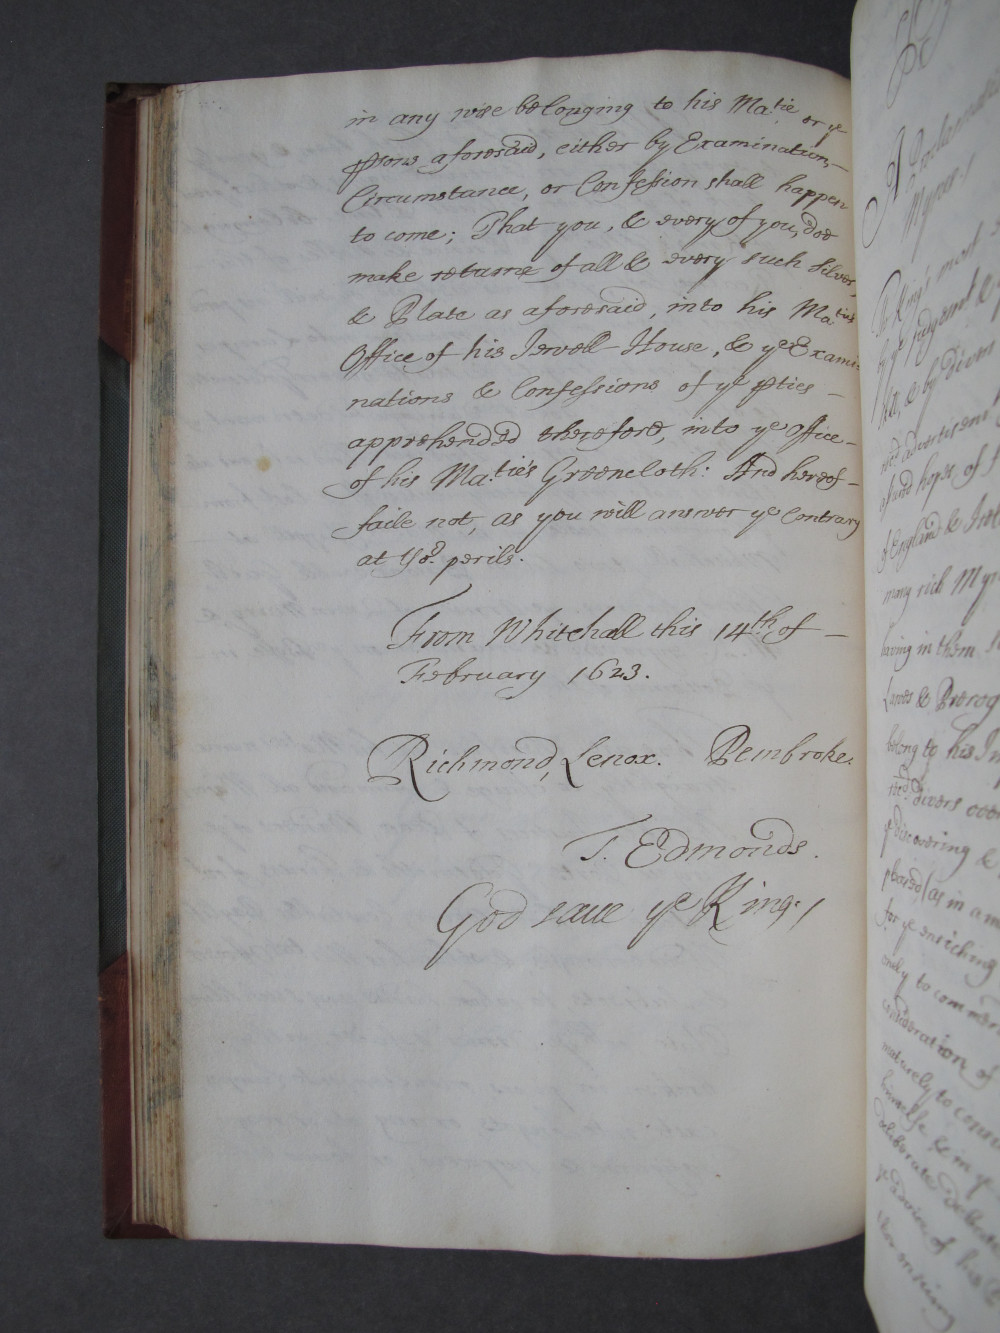 in any wise belonging to his Ma:tie or ye
psons aforesaid, either by Examination,
Circumstance, or Confession shall happen
to come; That you, & every of you, doe
make returne of all & every such Silver,
& Plate as aforesaid, into his Ma:ties
Office of his Jewell House, & ye Exami
nations & Confessions of ye pties
apprehended therefore, into ye Office
of his Ma:tie's Greencloth: And hereof
faile not, as you will answer ye Contrary
at yor perils.
From Whitehall this 14th of
February 1623.
Richmond, Lenox. Pembroke.
T. Edmonds.
God save ye King.
A Proclamation
Mynes
The King's most
by ye judgment &
&c, & by divers
advertisement
hopes of
of England &
many rich Myn
having in them
Lawes & Prerog
belong to his Im
divers
ye discovering &
(as in a
for ye enriching
only to
consideration of
maturely to
himselfe & in
deliberate
ye advice of his